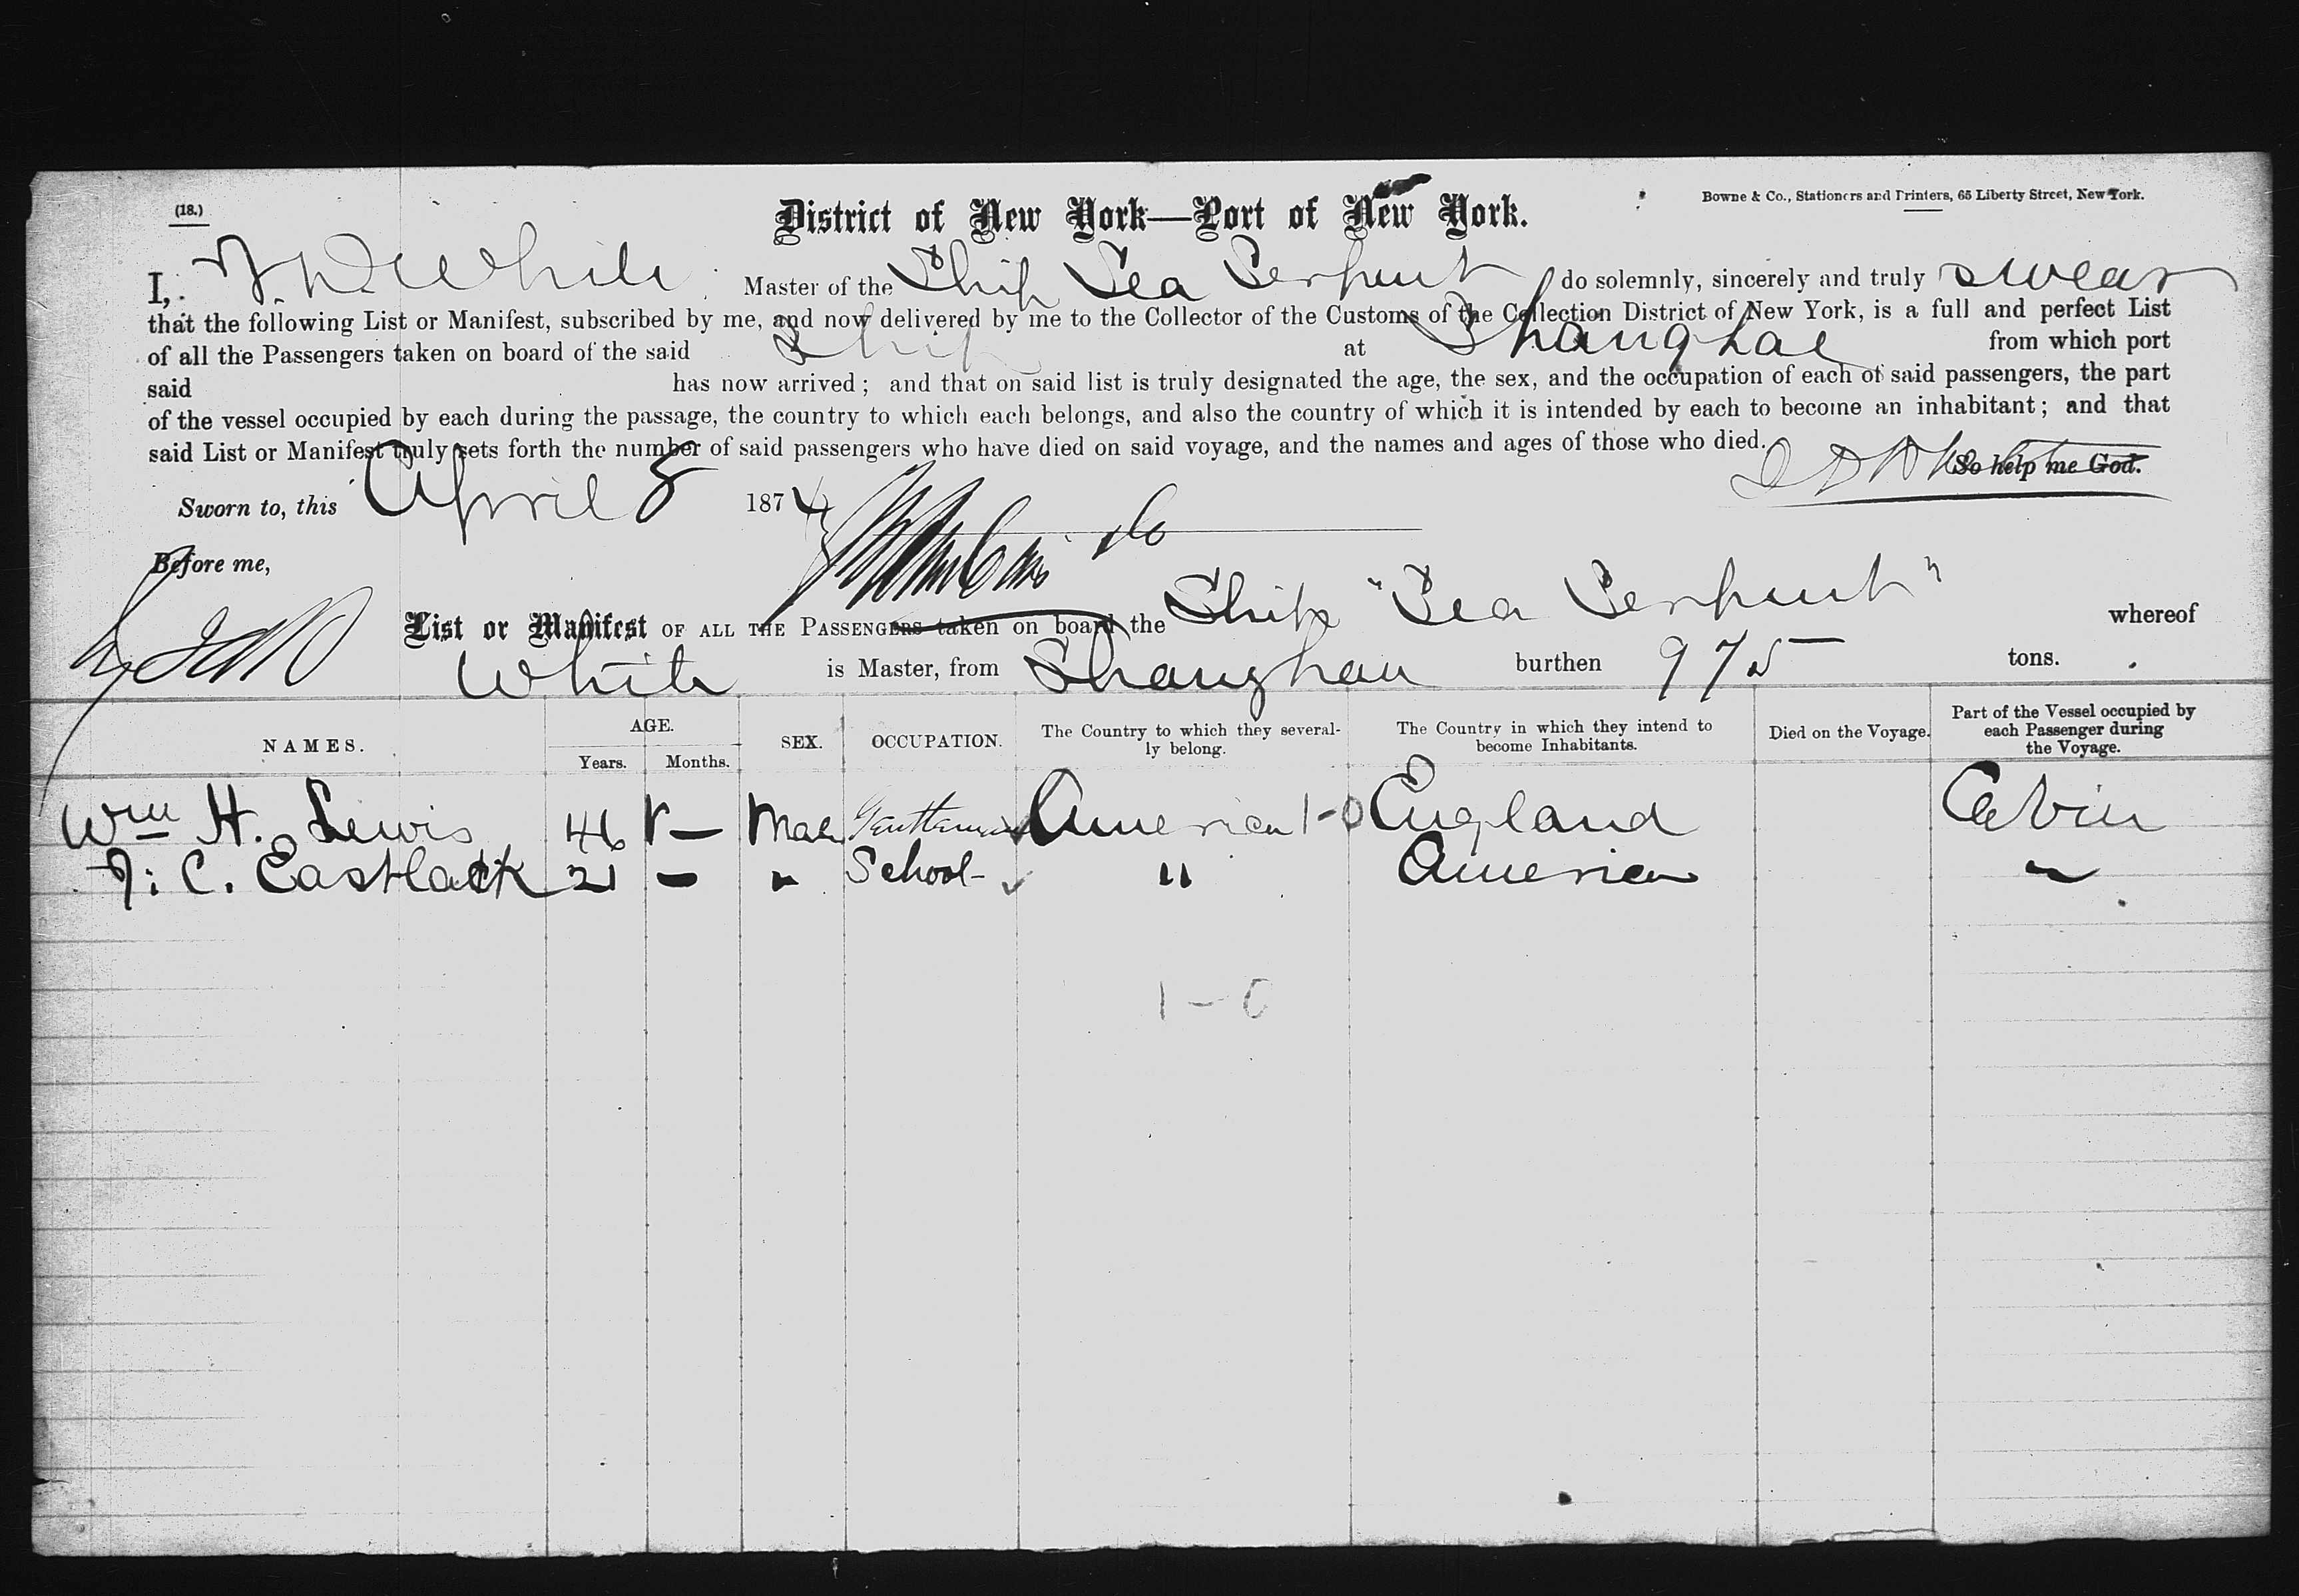 (18.)
District of New York—Port of New York.
Bowne & Co., Stationers and Printers, 65 Liberty Street, New York.
I, White Master of the Ship Sea Serpent do solemnly, sincerely and truly swear
that the following List or Manifest, subscribed by me, and now delivered by me to the Collector of the Customs of the Collection District of New York, is a full and perfect List
of all the Passengers taken on board of the said Ship at Shanghae from which port
said has now arrived; and that on said list is truly designated the age, the sex, and the occupation of each of said passengers, the part
of the vessel occupied by each during the passage, the country to which each belongs, and also the country of which it is intended by each to become an inhabitant; and that
said List or Manifest truly sets forth the number of said passengers who have died on said voyage, and the names and ages of those who died.
So help me God.
Sworn to, this April 8 1874
Before me,
List or Manifest OF ALL THE PASSENGERS taken on board the Ship "Sea Serpent" whereof
White is Master, from Shanghae burthen 975 tons.
NAMES. AGE. Years. Months. SEX. OCCUPATION. The Country to which they severally belong. The Country in which they intend to become Inhabitants. Died on the Voyage. Part of the Vessel occupied by each Passenger during the Voyage.
Wm H. Lewis 46 — Male America 1-0 England Cabin
C. Eastlack 21 — " School - " America "
1-0